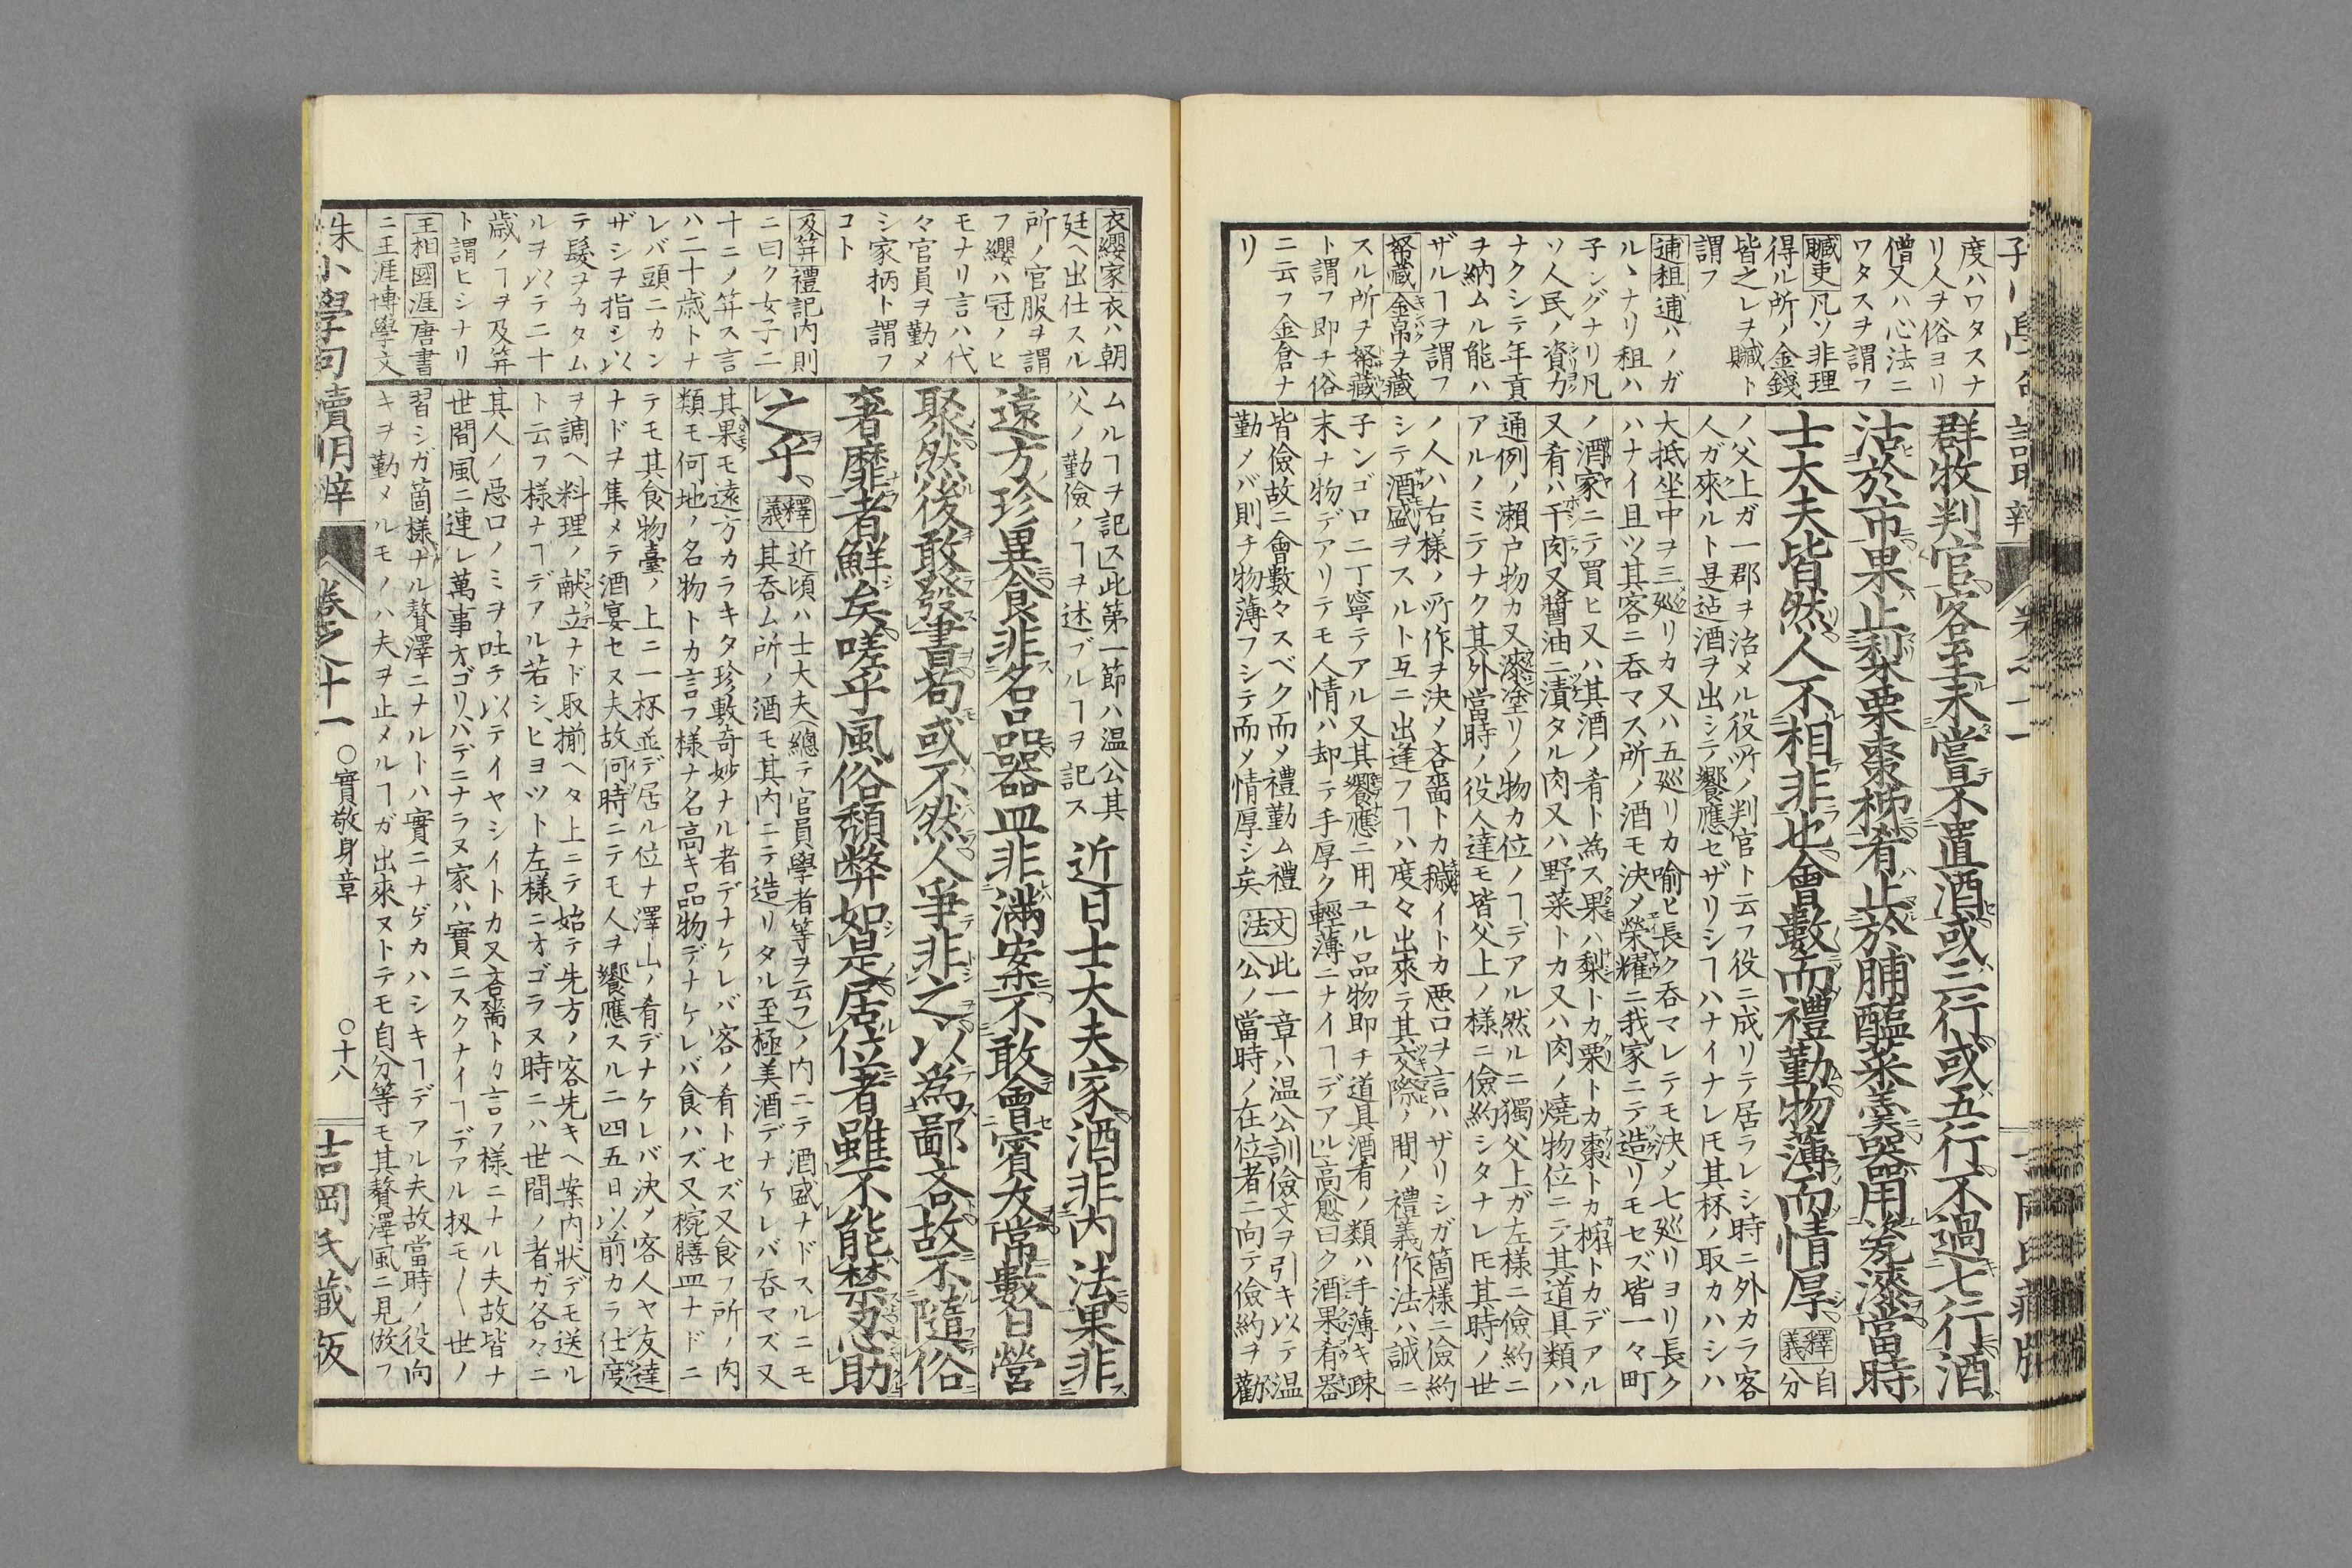 度ハワタスナ
リ人ヲ俗ヨリ
僧又ハ心法ニ
ワタスヲ謂フ
贓吏凡ソ非理
得ル所ノ金錢
皆之レヲ贓ト
謂フ
逋租逋ハノガ
ルヽナリ租ハ
子ングナリ凡
ソ人民ノ資力
ナクシテ年貢
ヲ納ムル能ハ
ザルヿヲ謂フ
帑藏金帛ヲ藏
スル所ヲ帑藏
ト謂フ即チ俗
ニ云フ金倉ナ
リ
群牧判官客至未嘗不置酒或三行或五行不過七行酒
沽於市果止梨栗棗柹肴止於脯醢菜羹器用瓷漆當時
士大夫皆然人不相非也會數而禮勤物薄而情厚
釋義
自分
ノ父上ガ一郡ヲ治メル役所ノ判官ト云フ役ニ成リテ居ラレシ時ニ外カラ客
人ガ來ルト是迠酒ヲ出シテ饗應セザリシヿハナイナレ𪜈其杯ノ取カハシハ
大抵坐中ヲ三巡リカ又ハ五巡リカ喻ヒ長ク呑マレテモ決メ七巡リヨリ長ク
ハナイ且ツ其客ニ呑マス所ノ酒モ決メ榮耀ニ我家ニテ造リモセズ皆一々町
ノ酒家ニテ買ヒ又ハ其酒ノ肴ト為ス果ハ梨トカ栗トカ棗トカ柹トカデアル
又肴ハ干肉又醬油ニ漬タル肉又ハ野菜トカ又ハ肉ノ燒物位ニテ其道具類ハ
通例ノ瀬戸物カ又漆塗リノ物カ位ノヿデアル然ルニ獨父上ガ左樣ニ儉約ニ
アルノミテナク其外當時ノ役人達モ皆父上ノ樣ニ儉約シタナレ𪜈其時ノ世
ノ人ハ右樣ノ所作ヲ決メ吝嗇トカ穢イトカ悪口ヲ言ハザリシガ箇樣ニ儉約
シテ酒盛ヲスルト互ニ出逢フヿハ度々出來テ其交際ノ間ノ禮義作法ハ誠ニ
子ンゴロニ丁寧テアル又其饗應ニ用ユル品物即チ道具酒肴ノ類ハ手薄キ疎
末ナ物デアリテモ人情ハ却テ手厚ク輕薄ニナイヿデアル」高愈曰ク酒果肴器
皆儉故ニ會數々スベク而メ禮勤ム禮
勤メバ則チ物薄フシテ而メ情厚シ矣
文法
此一章ハ温公訓儉文ヲ引キ以テ温
公ノ當時ノ在位者ニ向テ儉約ヲ勸
衣纓家衣ハ朝
廷ヘ出仕スル
所ノ官服ヲ謂
フ纓ハ冠ノヒ
モナリ言ハ代
々官員ヲ勤メ
シ家柄ト謂フ
コト
及笄禮記内則
ニ曰ク女子ニ
十ニノ笄ス言
ハ二十歳トナ
レバ頭ニカン
ザシヲ指シ以
テ髮ヲカタム
ルヲ以テ二十
歳ノヿヲ及笄
ト謂ヒシナリ
王相國涯唐書
ニ王涯博學文
ムルヿヲ記ス」此第一節ハ温公其
父ノ勤儉ノヿヲ述ブルヿヲ記ス
近日士大夫家酒非内法果非
遠方珍異食非名品器皿非滿案不敢會賓友常數日營
聚然後敢發書苟或不然人爭非之以為鄙吝故不隨俗
奢靡者鮮矣嗟乎風俗頽弊如是居位者雖不能禁忍助
之乎
釋義
近頃ハ士大夫(總テ官員學者等ヲ云フ)ノ内ニテ酒盛ナドスルニモ
其呑ム所ノ酒モ其内ニテ造リタル至極美酒デナケレバ呑マズ又
其果モ遠方カラキタ珍敷奇妙ナル者デナケレバ客ノ肴トセズ又食フ所ノ肉
類モ何地ノ名物トカ言フ樣ナ名高キ品物デナケレバ食ハズ又椀膳皿ナドニ
テモ其食物臺ノ上ニ一杯並デ居ル位ナ澤山ノ肴デナケレバ決メ客人ヤ友達
ナドヲ集メテ酒宴セヌ夫故何時ニテモ人ヲ饗應スルニ四五日以前カラ仕度
ヲ調ヘ料理ノ献立ナド取揃ヘタ上ニテ始テ先方ノ客先キヘ案内狀デモ送ル
ト云フ樣ナヿデアル若シヒヨツト左樣ニオゴラヌ時ニハ世間ノ者ガ各々ニ
其人ノ悪口ノミヲ吐テ以テイヤシイトカ又吝嗇トカ言フ樣ニナル夫故皆ナ
世間風ニ連レ萬事オゴリハデニナラヌ家ハ實ニスクナイヿデアル扨モ〱世ノ
習シガ箇樣ナル贅澤ニナルトハ實ニナゲカハシキヿデアル夫故當時ノ役向
キヲ勤メルモノハ夫ヲ止メルヿガ出來ヌトテモ自分等モ其贅澤風ニ見倣フ
朱小學句讀明辨
卷之十一
○實敬身章
○十八
吉岡氏藏板